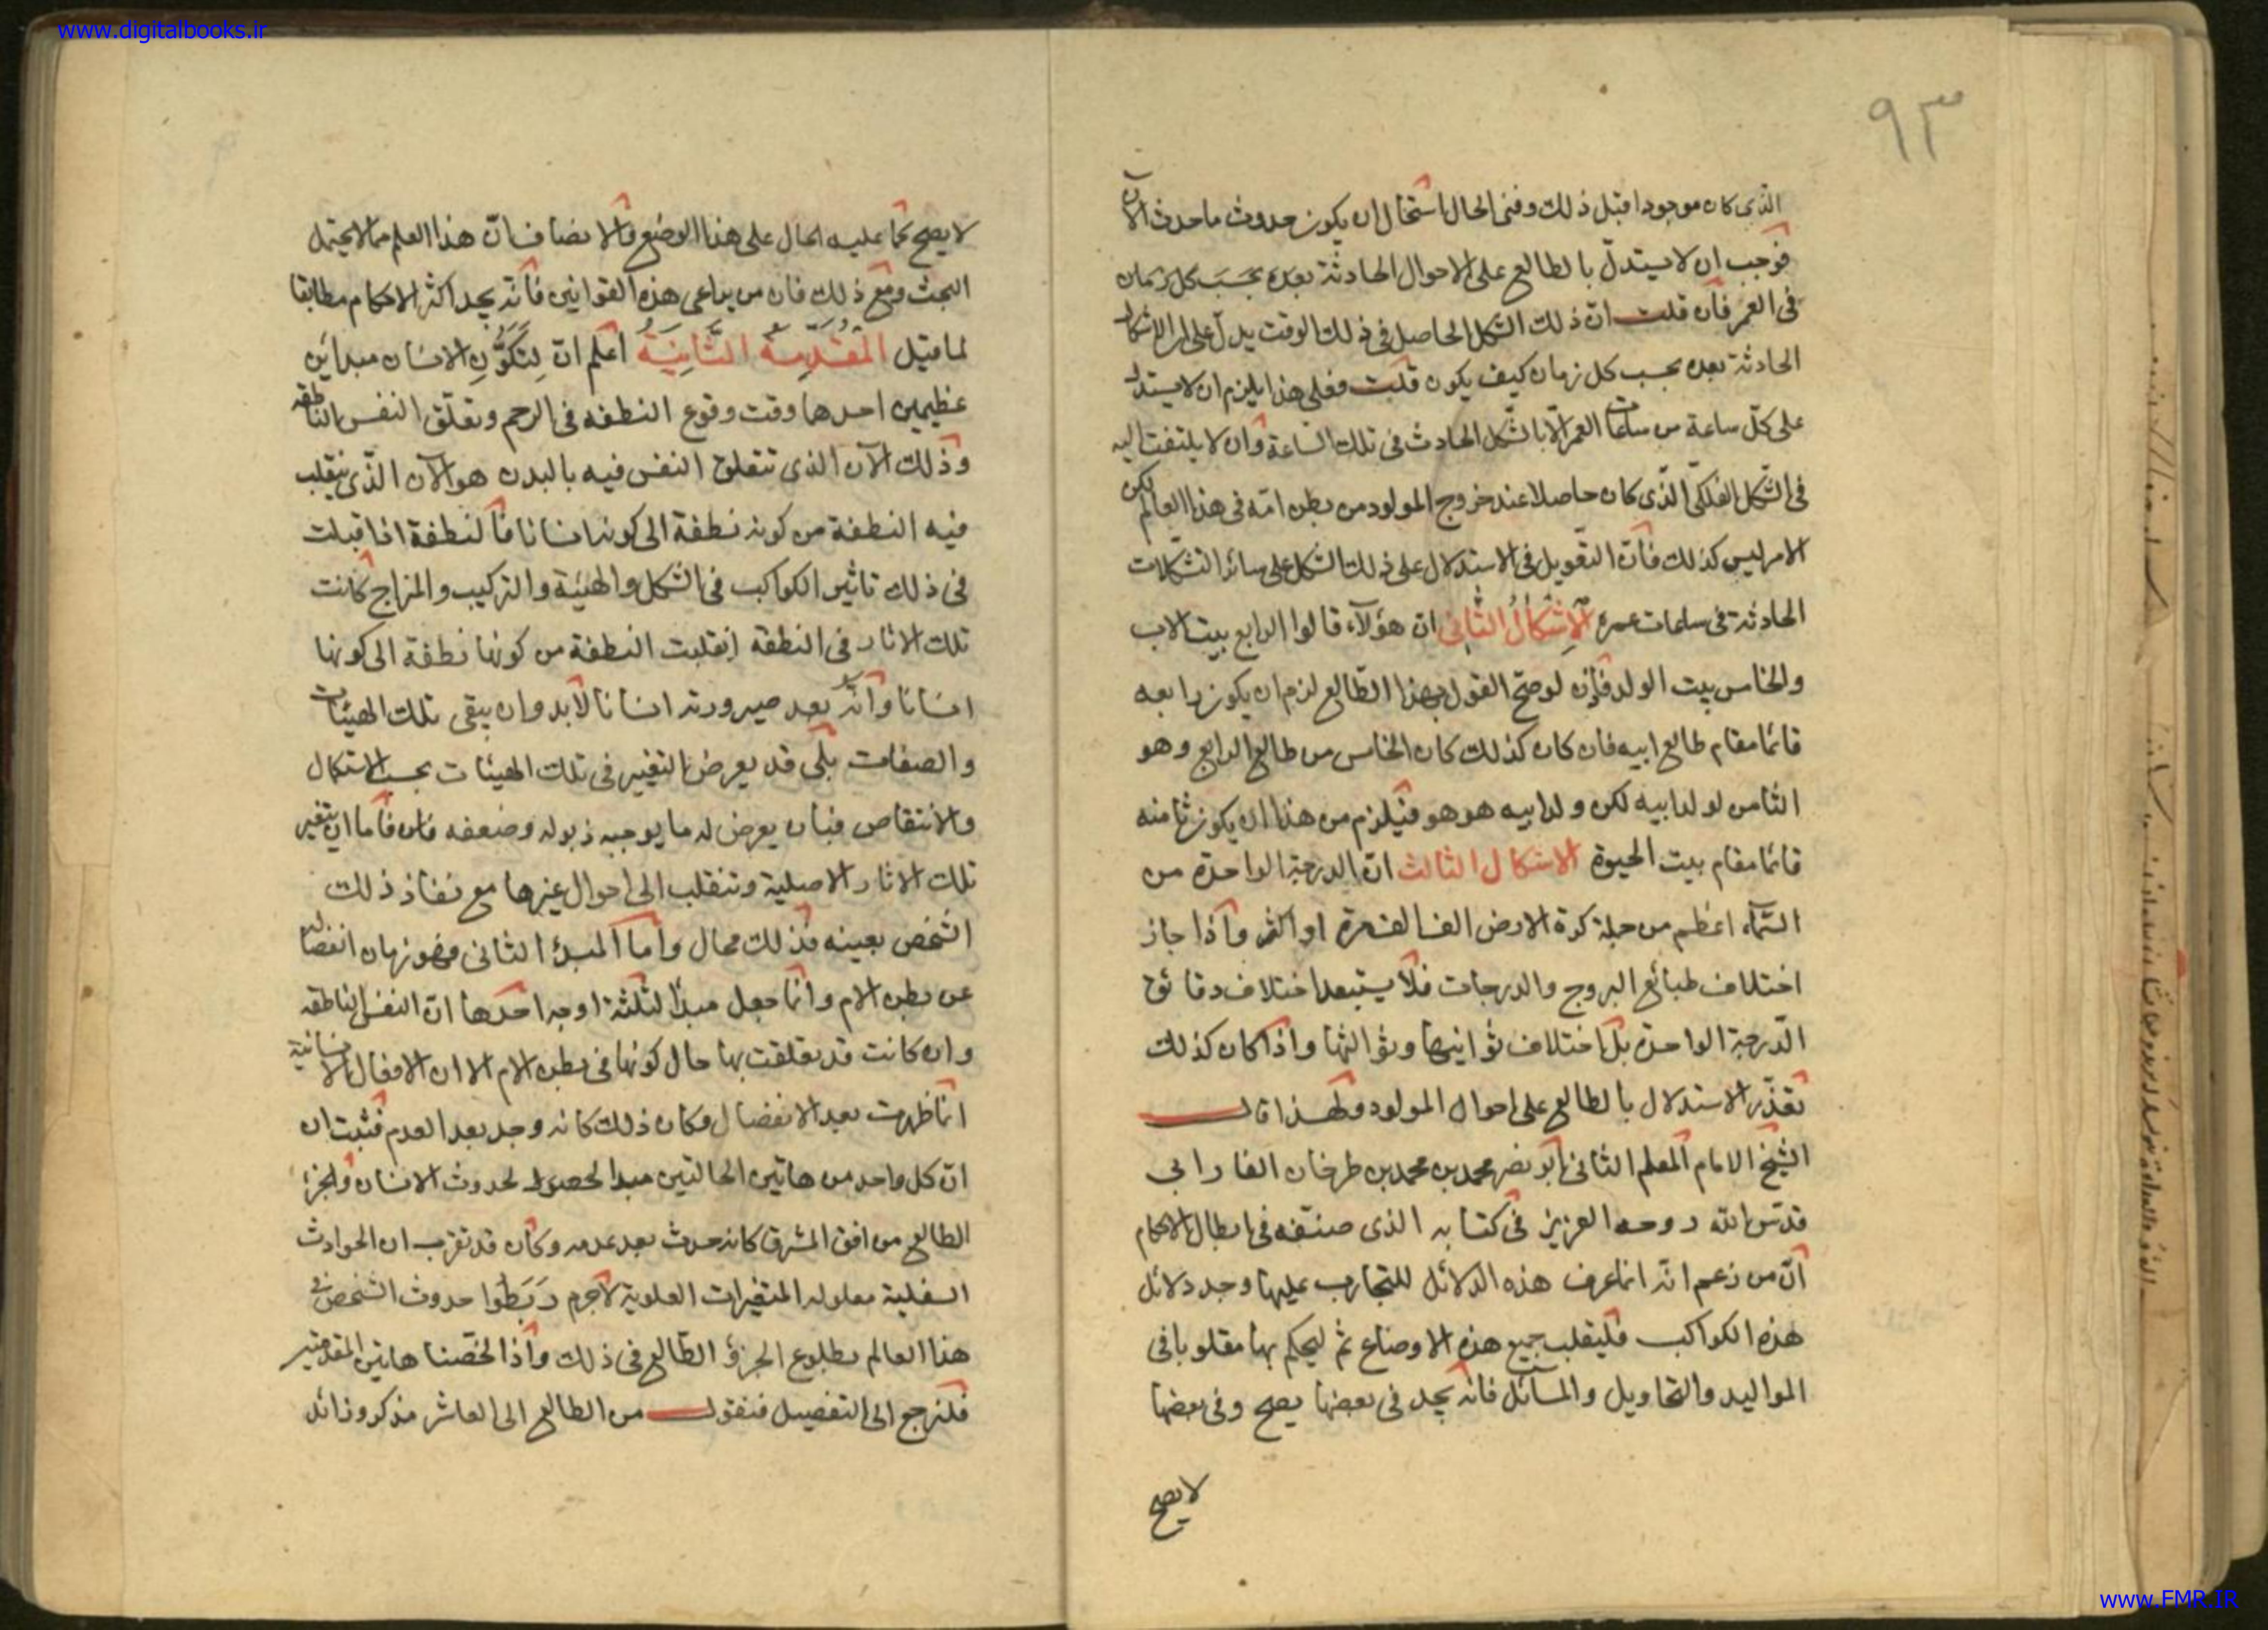 www.digitalbooks.ir
٩٣
الذى كان موجودا قبل ذلك وفنى الحال استحال ان يكون حدوث ما حدث الآن
فوجب ان لا يستدلّ بالطالع على الاحوال الحادثة بعده بحسب كل زمان
فى العمر فان قلت انّ ذلك الشكل الحاصل فى ذلك الوقت يدلّ على الاشكال
الحادثة بعده بحسب كل زمان كيف يكون قلت فعلى هذا يلزم ان لا يستدل
على كلّ ساعة من ساعات العمر الّا بالشّكل الحادث فى تلك السّاعة وان لا يلتفت اليه
فى الشّكل الفلكىّ الّذى كان حاصلا عند خروج المولود من بطن امّه فى هذا العالم لكن
الامر ليس كذلك فانّ التّعويل فى الاستدلال على ذلك الشكل على سائر التشكلات
الحادثة فى ساعات عمره الْاِشْكالُ الثَّانى انّ هؤلآء قالوا الرابع بيت الاب
والخامس بيت الولد فاذن لو صحّ القول بهذا الطّالع لزم ان يكون رابعه
قائما مقام طالع ابيه فان كان كذلك كان الخامس من طالع الرابع وهو
الثامن لولد ابيه لكن ولد ابيه هو هو فيلزم من هذا ان يكون ثامنه
قائما مقام بيت الحيوة الاشكال الثالث انّ الدرجة الواحدة من
السّمآء اعظم من جملة كرة الارض الف الف مرة او اكثر واذا جاز
اختلاف طبائع البروج والدرجات فلا يستبعد اختلاف دقائق
الدّرجة الواحدة بل اختلاف ثوانيها وثوالثها واذا كان كذلك
تعذّر الاستدلال بالطالع على احوال المولود ولهذا قال
الشّيخ الامام المعلم الثانى ابو نصر محمد بن محمد بن طرخان الفارابى
قدّس الله روحه العزيز فى كتابه الذى صنّفه فى ابطال الاحكام
انّ من زعم انّه انما عرف هذه الدّلائل للتجارب عليها وجد دلائل
هذه الكواكب فليقلب جميع هذه الاوضاع ثم ليحكم بها مقلوبا فى
المواليد والتحاويل والمسآئل فانّه يجد فى بعضها يصح وفى بعضها
لا يصح
لا يصح كما عليه الحال على هذا الوضع والانصاف انّ هذا العلم مما لا يحتمل
البحث ومع ذلك فان من يراعى هذه القوانين فانّه يجد اكثر الاحكام مطابقا
لما قيل المُقَدِّمَةُ الثَّانِيَةُ اعلم انّ لِتَكَوُّنِ الانسان مبدأين
عظيمين احدها وقت وقوع النطفه فى الرحم وتعلّق النفس الناطقه
وذلك الآن الذى تتعلق النفس فيه بالبدن هو الآن الذّى ينقلب
فيه النطفة من كونه نطفة الى كونه انسانا فالنطفة اذا قبلت
فى ذلك تاثير الكواكب فى الشكل والهيئة والتركيب والمزاج كانت
تلك الاثار فى النطفه انقلبت النطفة من كونها نطفة الى كونها
انسانا وانّه بعد صيرورته انسانا لابد وان يبقى تلك الهيئات
والصفات بلى قد يعرض التغيير فى تلك الهيئات بحسب الاستكمال
والانتقاص فبان يعرض له ما يوجب ذبوله وضعفه فان فاما ان يتغير
تلك الاثار الاصلية وتنقلب الى احوال غيرها مع نفاذ ذلك
الشخص بعينه فذلك محال واما المبدأ الثانى فهو زمان انفصاله
عن بطن الام وانما جعل مبدأ لثلثة اوجه احدها انّ النفس الناطقه
وان كانت قد تعلقت بها حال كونها فى بطن الام الا ان الافعال الانسانية
انما ظهرت بعد الانفصال وكان ذلك كانه وجد بعد العدم فثبت ان
انّ كل واحد من هاتين الحالتين مبدا لحدوث الانسان والجزء
الطالع من افق المشرق كانه حدث بعد عدمه وكان قد تقرب ان الحوادث
السفلية معلوله المتغيرات العلوية لاجرم رَبَطُوا حدوث الشخص فى
هذا العالم بطلوع الجزؤ الطّالع فى ذلك واذا لخّصنا هاتين المقدمتين
فلنرجع الى التفصيل فنقول من الطالع الى العاشر مذكر وزائد
www.FMR.IR